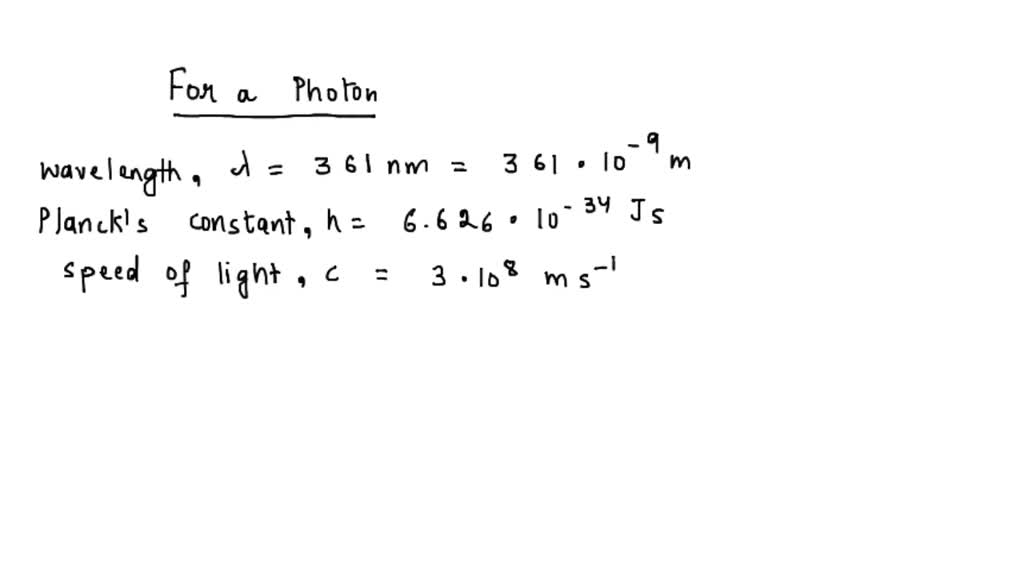 For a Photon
wavelength, λ = 361 nm = 361 · 10⁻⁹ m
Planck's constant, h = 6.626 · 10⁻³⁴ Js
speed of light, c = 3 · 10⁸ m s⁻¹